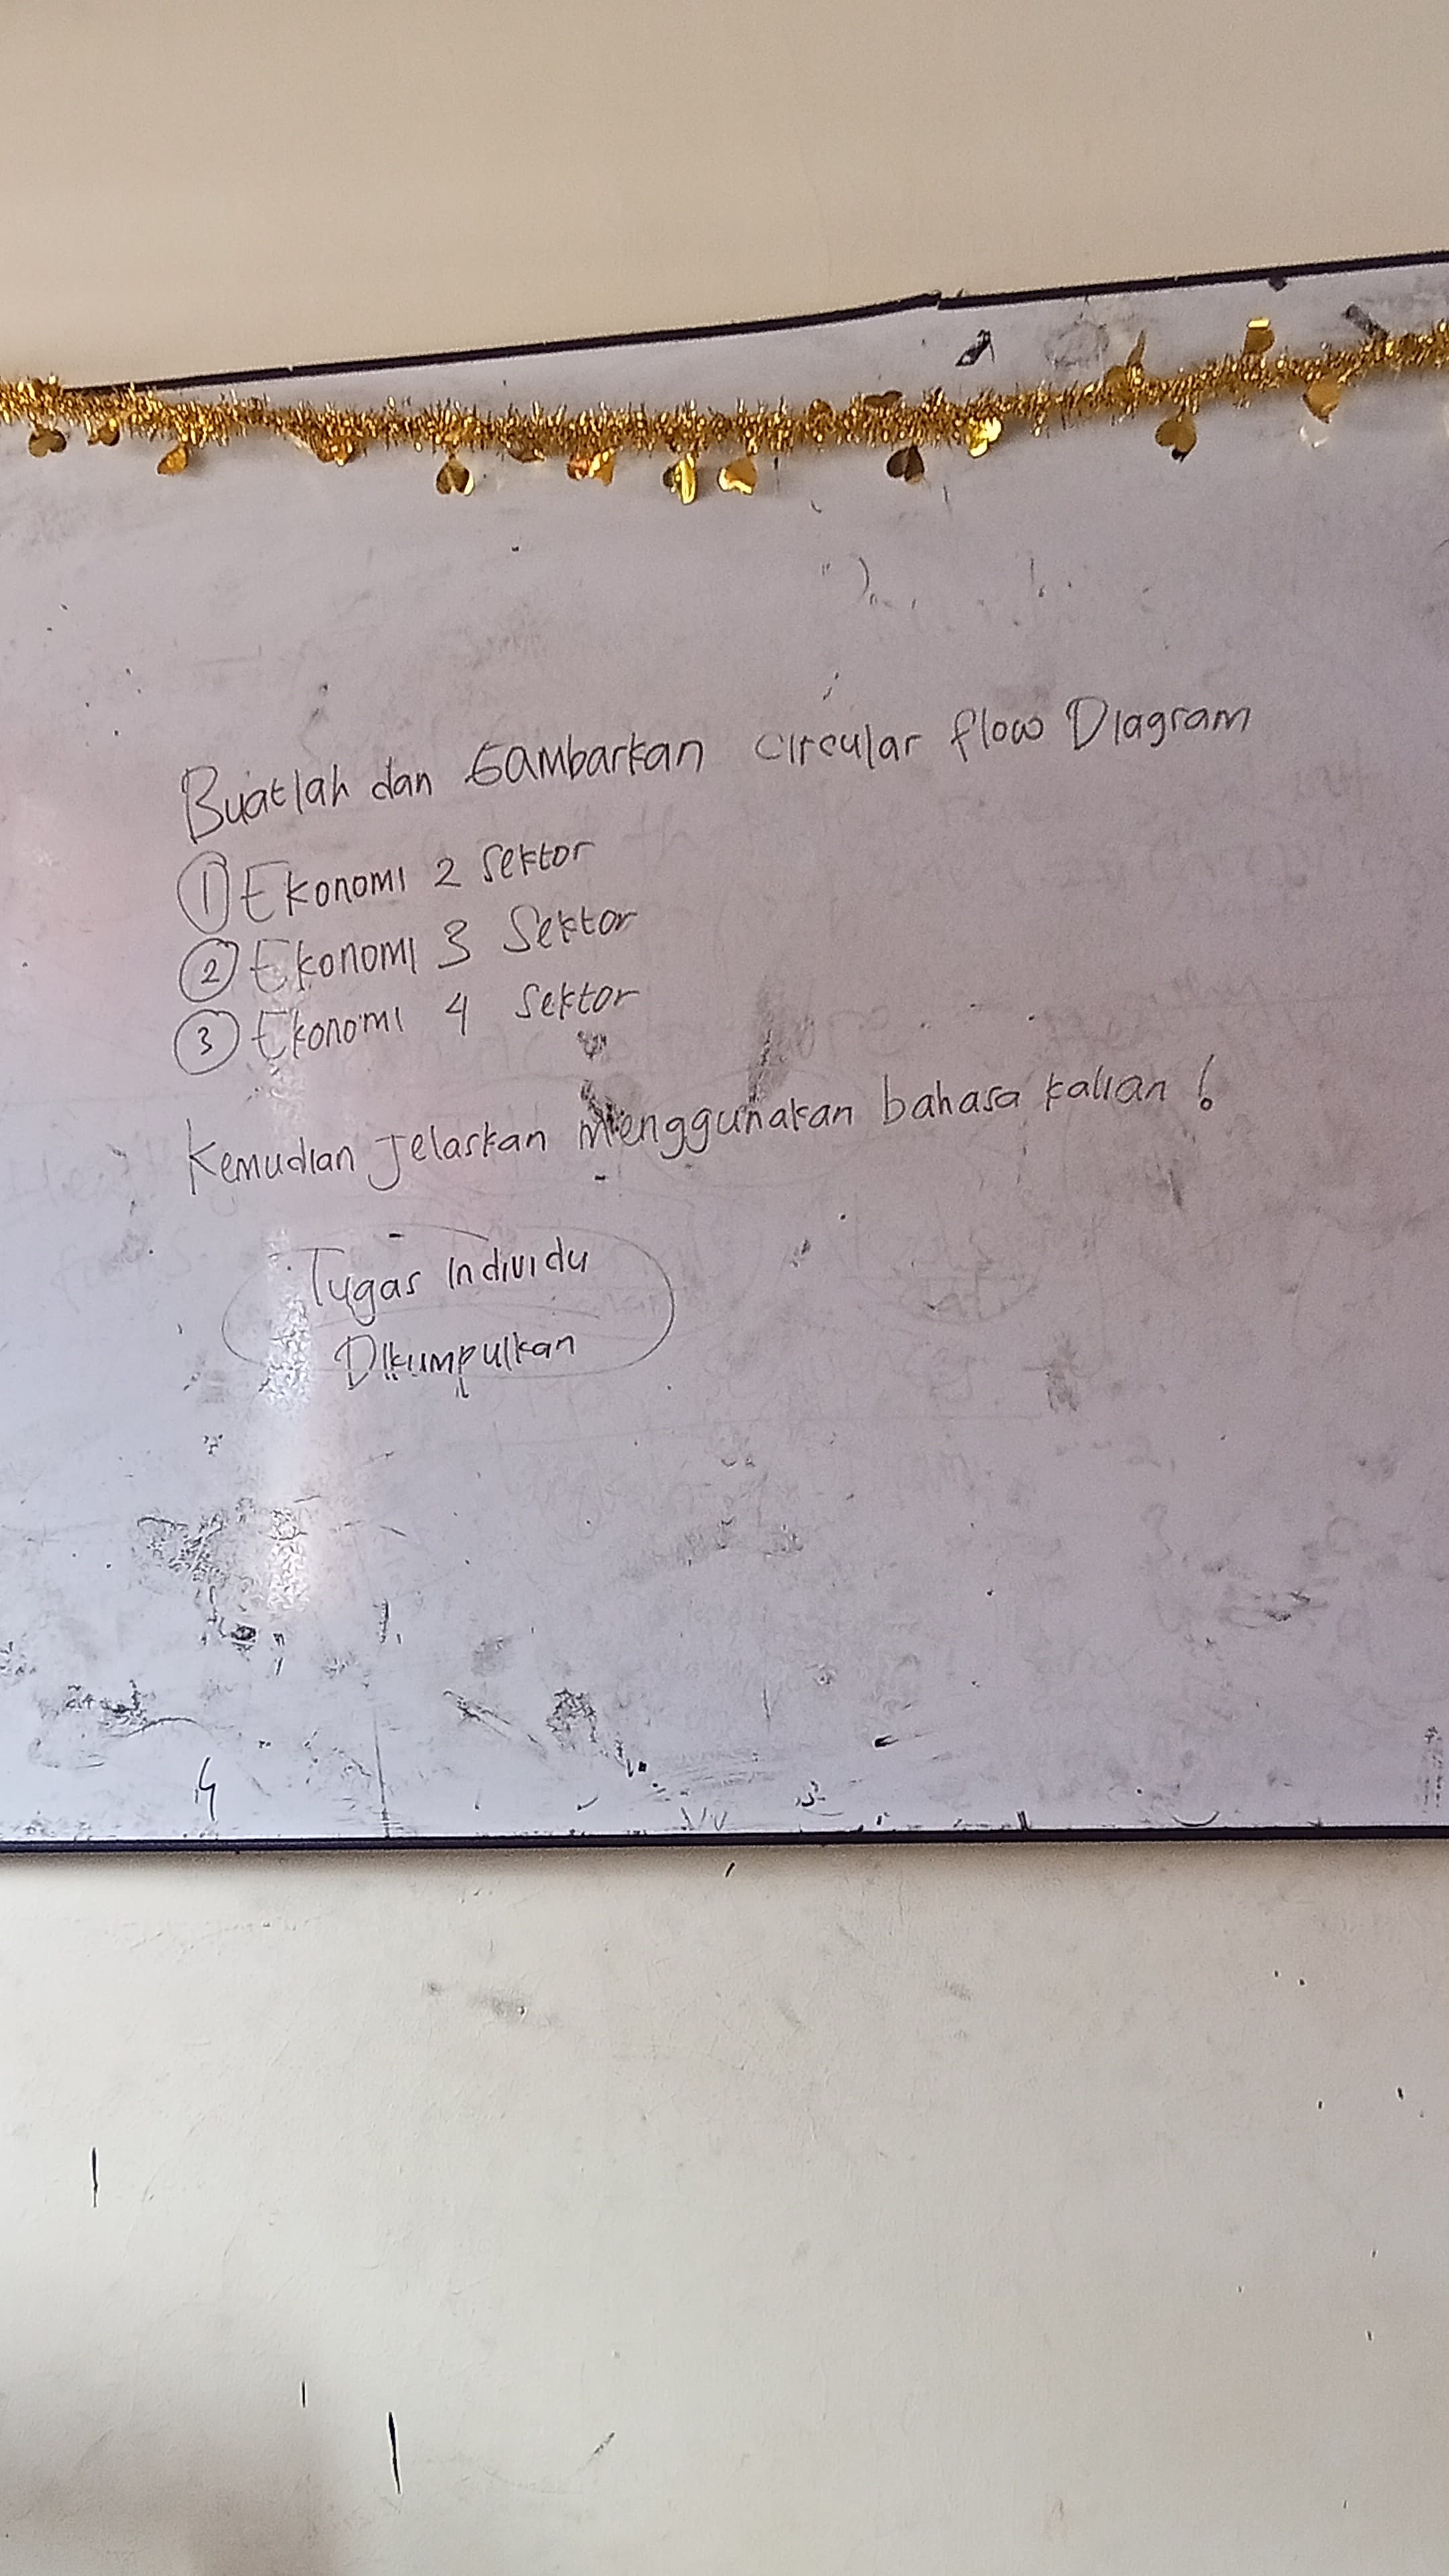 Buatlah dan Gambarkan circular flow Diagram
① Ekonomi 2 sektor
② Ekonomi 3 Sektor
③ Ekonomi 4 Sektor
Kemudian Jelaskan menggunakan bahasa kalian !
Tugas Individu
Dikumpulkan